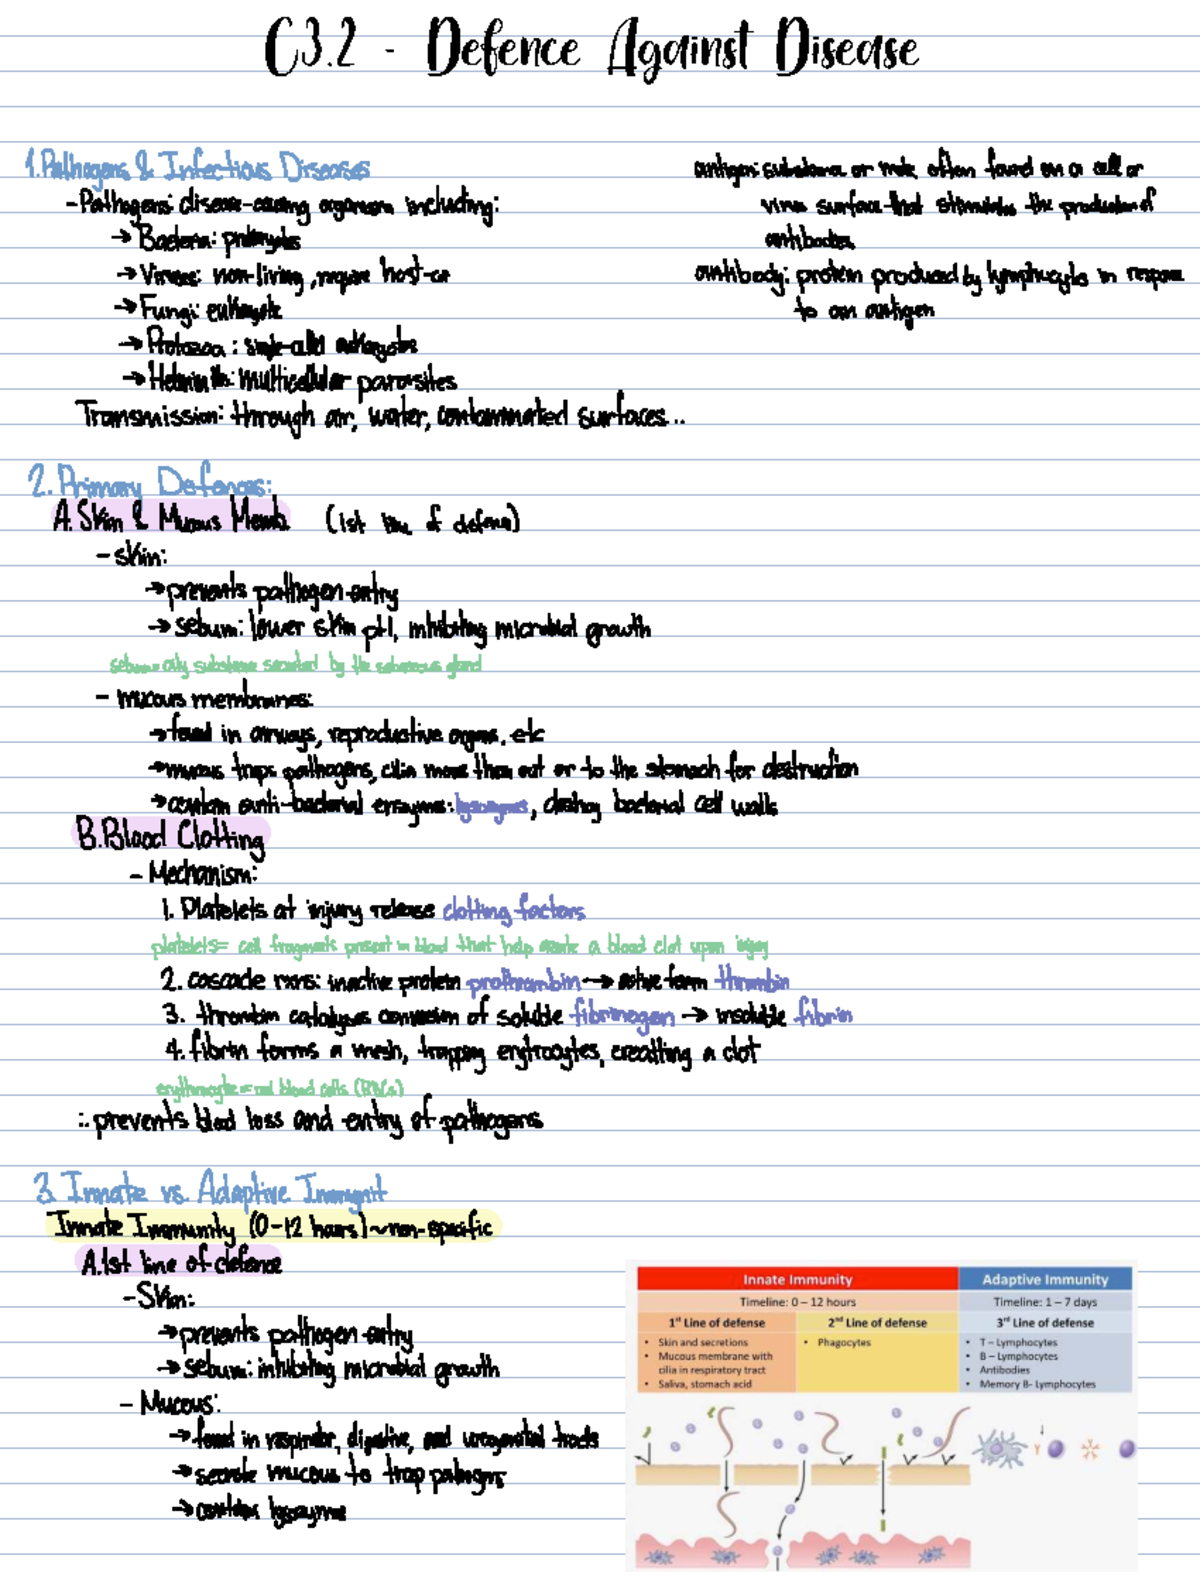 C3.2 - Defence Against Disease
1. Pathogens & Infectious Diseases
- Pathogens: disease-causing organisms including:
→ Bacteria: prokaryotes
→ Viruses: non-living, require host-
→ Fungi: eukaryote
→ Protozoa: single-celled eukaryotes
→ Helminths: multicellular parasites
Transmission: through air, water, contaminated surfaces...
antigen: substance or often found on a cell or
virus surface that stimulates the production of
antibodies
antibody: protein produced by lymphocyte in response
to an antigen
2. Primary Defences:
A. Skin & Mucous Memb. (1st line of defence)
- skin:
→ prevents pathogen entry
→ sebum: lower skin pH, inhibiting microbial growth
sebum = oily substance secreted by the sebaceous gland
- mucous membranes:
→ found in airways, reproductive organs, etc
→ mucus traps pathogens, cilia move them out or to the stomach for destruction
→ contain anti-bacterial enzymes: lysozymes, destroy bacterial cell walls
B. Blood Clotting
- Mechanism:
1. Platelets at injury release clotting factors
platelets = cell fragments present in blood that help create a blood clot upon injury
2. cascade rxns: inactive protein prothrombin → active form thrombin
3. thrombin catalyses conversion of soluble fibrinogen → insoluble fibrin
4. fibrin forms a mesh, trapping erytrocytes, creatting a clot
erythrocyte = red blood cells (RBCs)
∴ prevents blood loss and entry of pathogens
3. Innate vs. Adaptive Immunit
Innate Immunity (0-12 hours) ~ non-specific
A. 1st line of defence
- Skin:
→ prevents pathogen entry
→ sebum: inhibiting microbial growth
- Mucous:
→ found in respirator, digestive, and urogenital tracts
→ secrete mucous to trap pathogens
→ contains lysozyme
Innate Immunity Adaptive Immunity
Timeline: 0 – 12 hours Timeline: 1 – 7 days
1st Line of defense 2nd Line of defense 3rd Line of defense
• Skin and secretions • Phagocytes • T – Lymphocytes
• Mucous membrane with • B – Lymphocytes
cilia in respiratory tract • Antibodies
• Saliva, stomach acid • Memory B- Lymphocytes